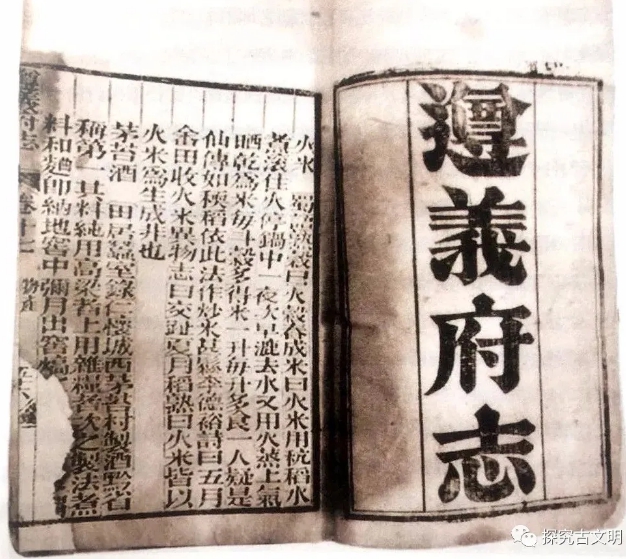 遵義府志
火米 蜀 穀曰火穀舂成米曰火米用杭稻水
煮滾住火停鍋中一夜次早漉去水又用火蒸上氣
晒乾爲米每斗穀多得米一升每升多食一人疑是
仙傳如梗稻依此法作炒米甚 李德裕詩曰五月
畬田收火米異物志曰交趾夏月稻熟曰火米皆以
火米爲生成非也
茅苔酒 田居蠶室錄仁懷城西茅苔村製酒黔省
稱第一其料純用高梁者上用雜糧者次之製法煮
料和麯即納地窖中彌月出窖
遵義府志 卷十七 物産
探究古文明